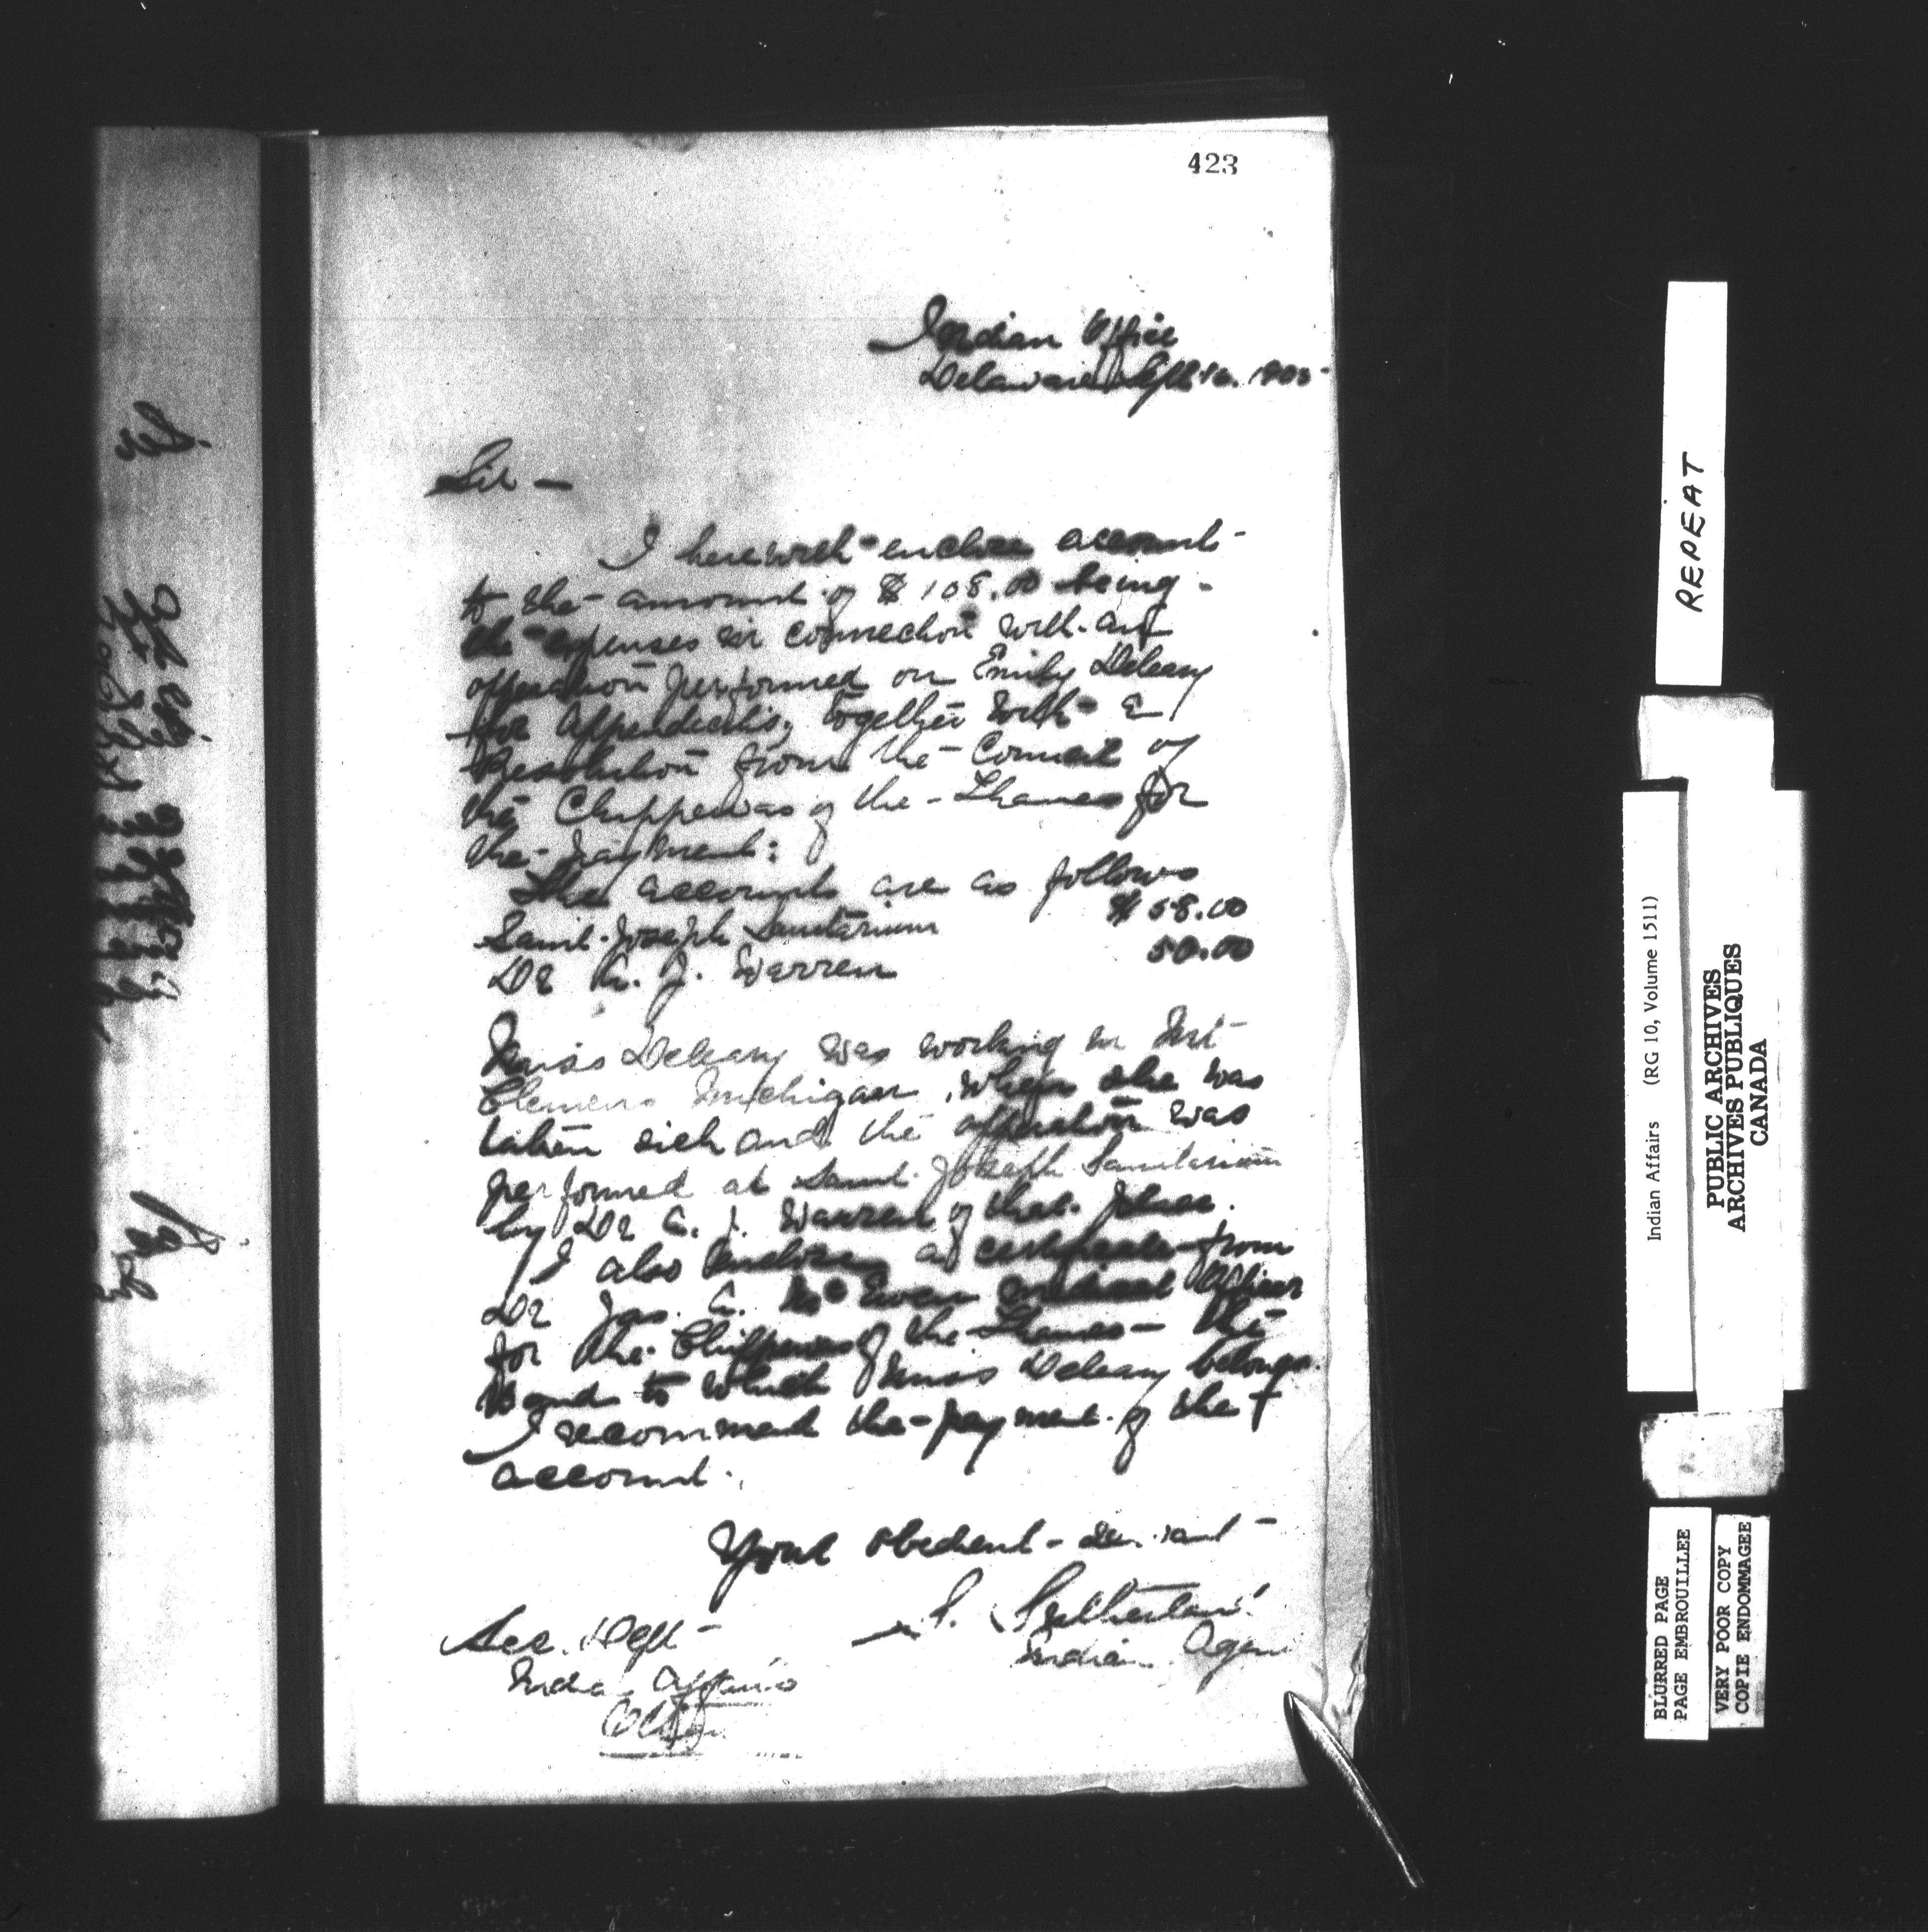 423
Indian Office
Delaware Sept 16. 190
Sir —
I herewith enclose accounts
to the amount of $108.00 being
the expenses in connection with an
opperation performed on Emily Deleary
for Appendicitis, together with a
Resolution from the Council of
the Chippewas of the Thames for
the payment:
The accounts are as follows
$58.00
Saint Joseph Sanitarium
50.00
Dr A. J. Warren
Miss Deleary was working in Mt
Clemens Michigan, when she was
taken sick and the opperation was
performed at Saint Joseph Sanitarium
by Dr A. J. Warren of that place.
I also enclose a certificate from
Dr Jas. A. McEwen medical officer
for the Chippewas of the Thames — the
Band to which Miss Deleary belongs.
I recommend the payment of the
account.
Your obedient servant
S. Sutherland
Indian Agent
Sec. Dept
Indian Affairs
REPEAT
Indian Affairs (RG 10, Volume 1511)
PUBLIC ARCHIVES
ARCHIVES PUBLIQUES
CANADA
BLURRED PAGE
PAGE EMBROUILLEE
VERY POOR COPY
COPIE ENDOMMAGEE